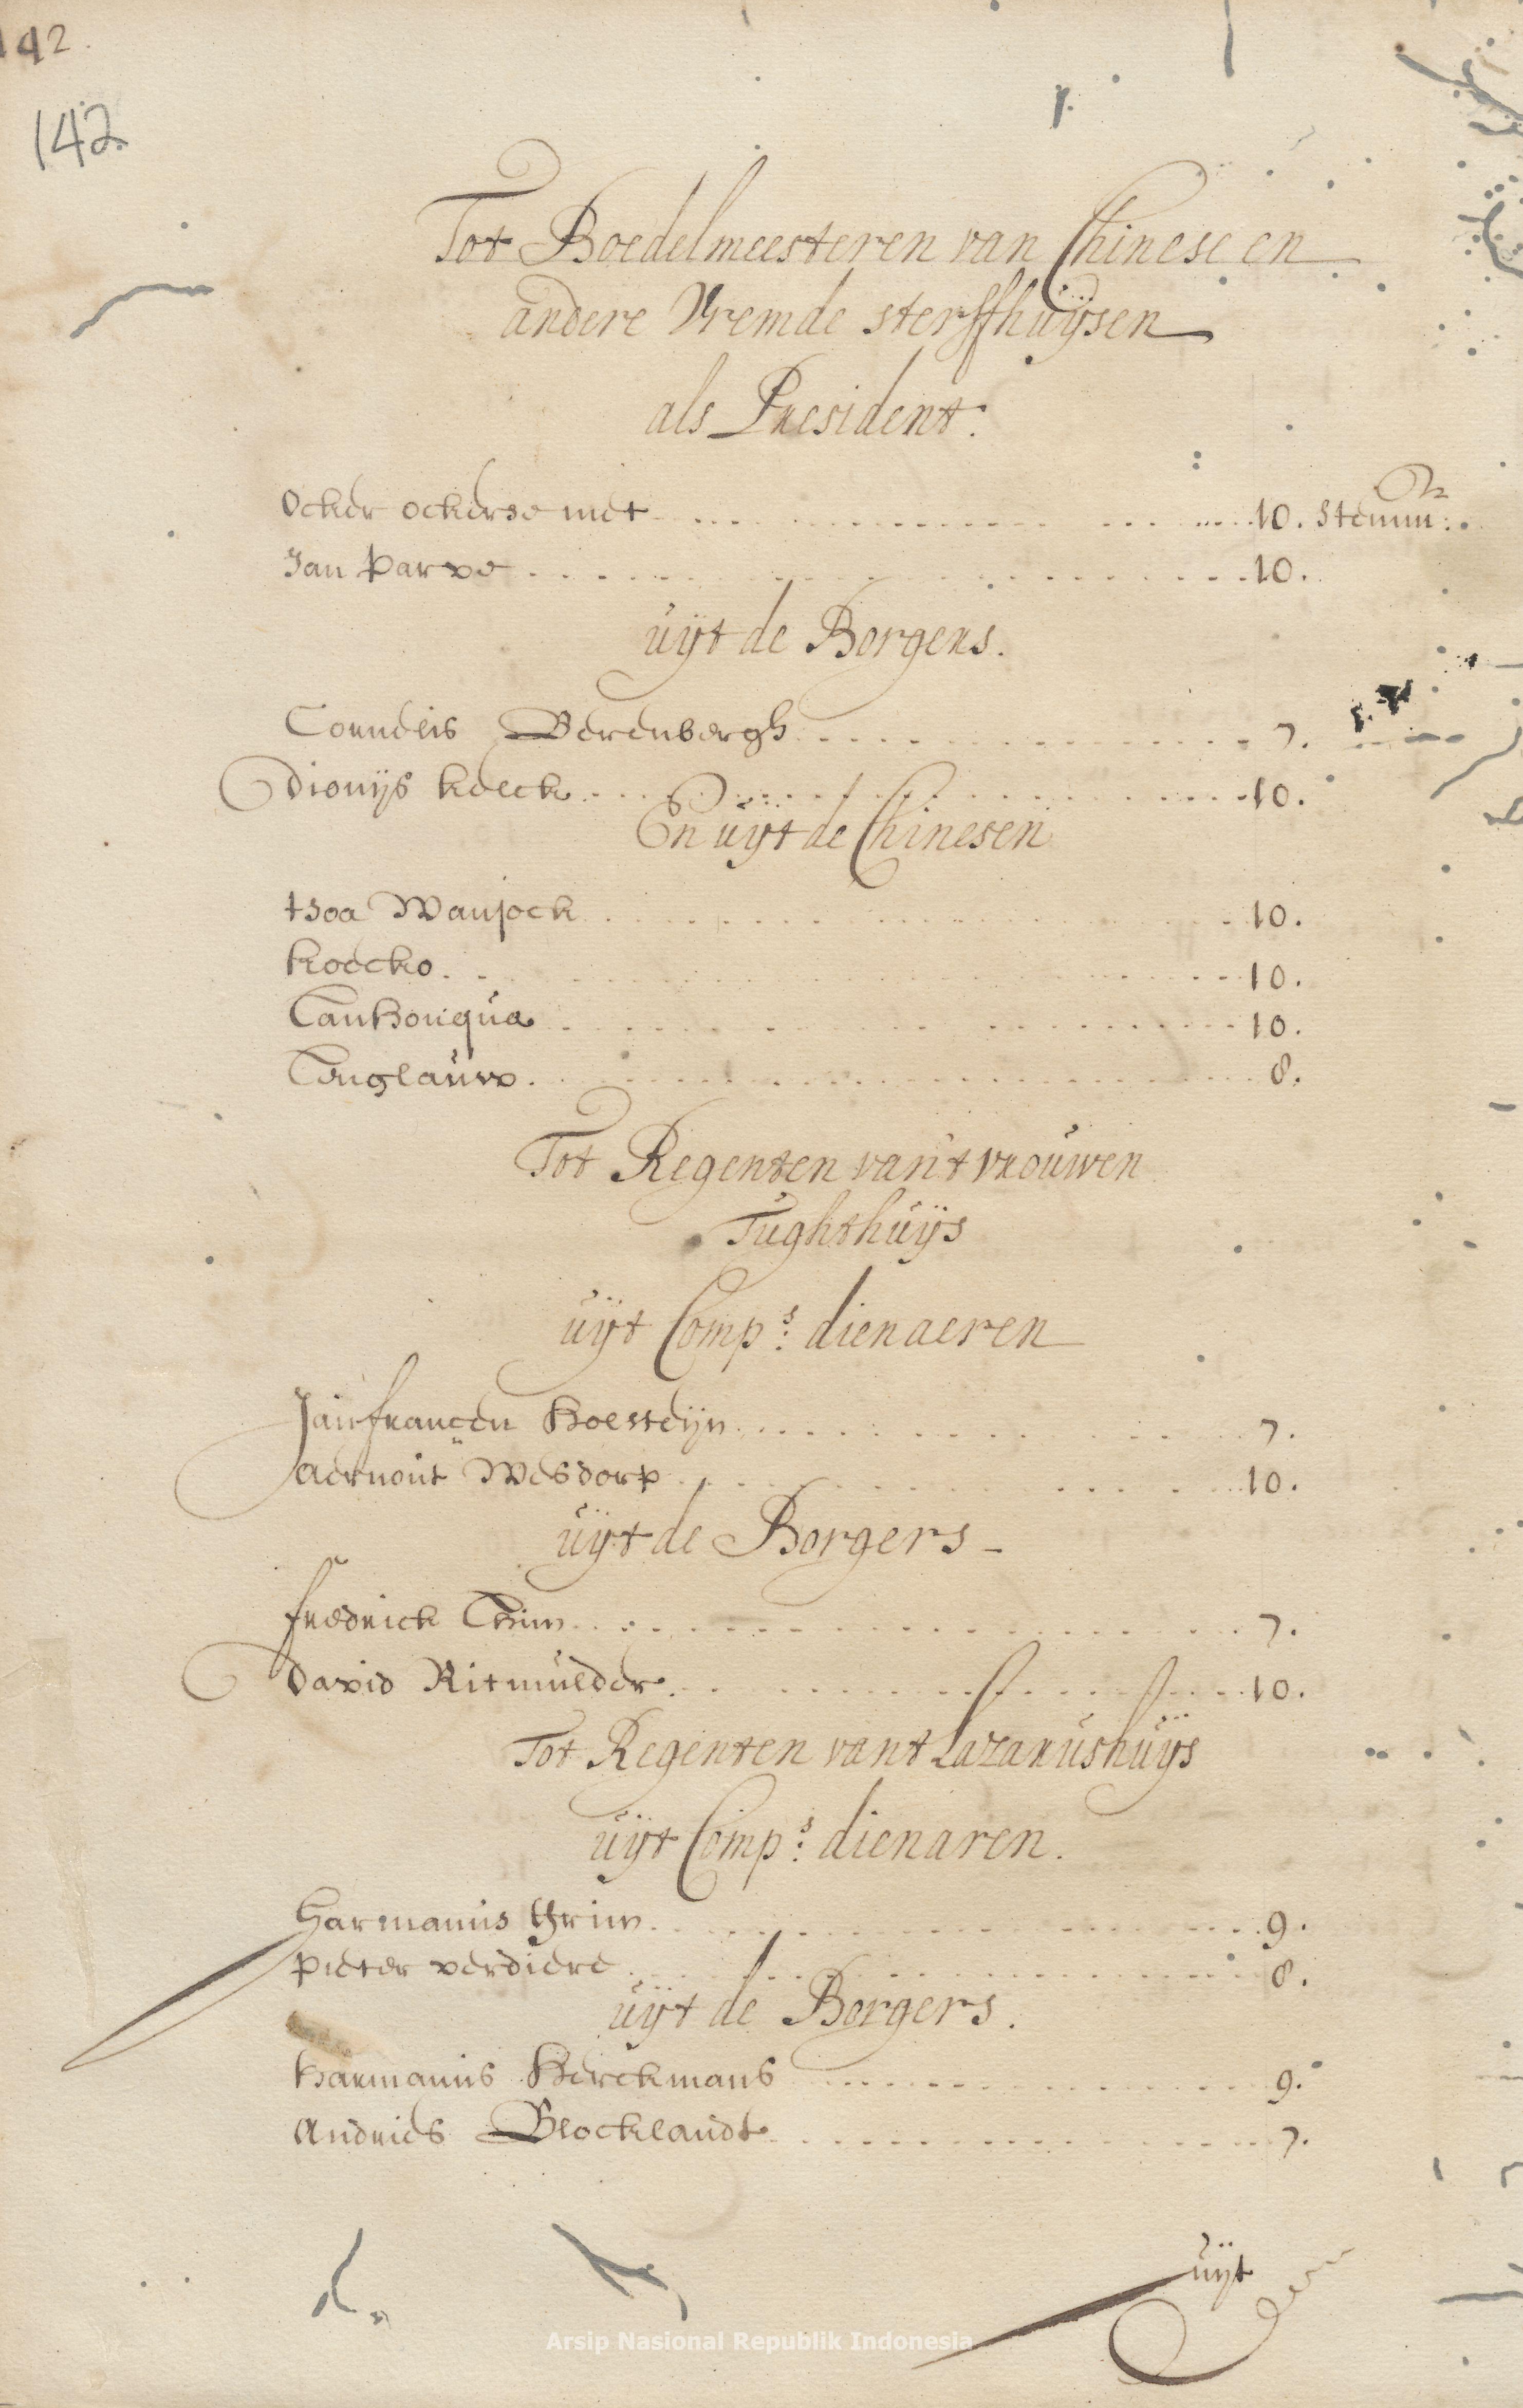 142.
142.
Tot Boedelmeesteren van Chinese en
andere Vremde sterffhuÿsen
als President.
Ocker ockerse met 10. stemm:
Jan Parve 10.
uÿt de Borgers.
Corneles Berenbergh 7.
Dionijs Kelck 10.
En uÿt de Chinesen
tsoa Wanjock 10.
Koecko 10.
Tanhonqua 10.
Tenglauw 8.
Tot Regenten van't vrouwen
Tughthuÿs
uÿt Comps: dienaeren
Jan francen Holsteijn 7.
aernout Wesdorp 10.
uÿt de Borgers
fredrick Thim 7.
David Ritmulder 10.
Tot Regenten vant Lazarushuÿs
uÿt Comps: dienaren.
Harmanus Thrim 9.
Pieter verdiere 8.
uÿt de Borgers.
harmanus Kerckmans 9.
Andries Blocklandt 7.
uÿt
Arsip Nasional Republik Indonesia